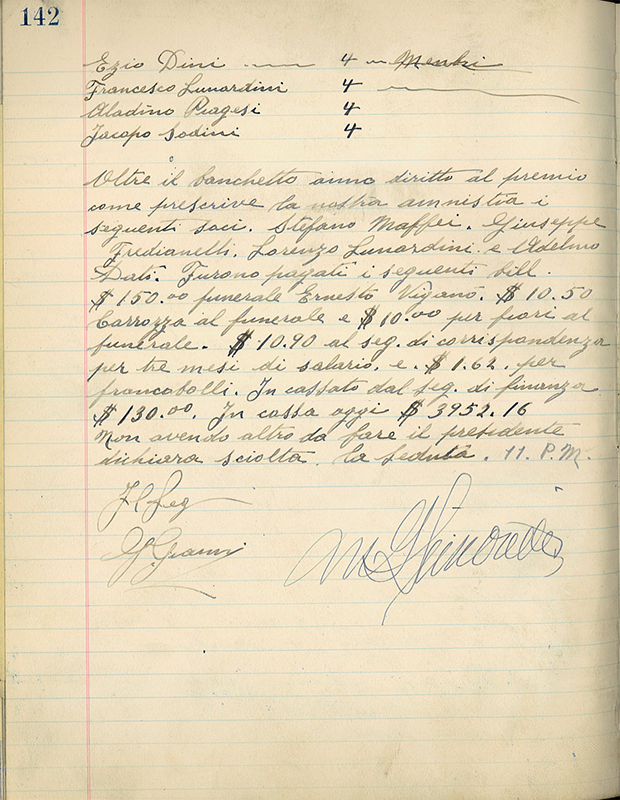 142
Ezio Dini 4 Menhi
Francesco Lunardini 4
Aladino Piagesi 4
Jacopo Sodini 4
Oltre il banchetto anno diritto al premio
come prescrive la nostra amnistia i
seguenti soci. Stefano Maffei. Giuseppe
Fredianelli. Lorenzo Lunardini e Adelmo
Dati. Furono pagati i seguenti bill.
$ 150.00 funerale Ernesto Viganò. $ 10.50
Carrozza al funerale e $ 10.00 per fiori al
funerale. $ 10.90 al seg. di corrispondenza
per tre mesi di salario. e. $ 1.62. per
francobolli. In cassato dal seg. di finanza
$ 130.00. In cassa oggi $ 3952.16
Non avendo altro da fare il presidente
dichiara sciolta. la seduta. 11. P.M.
Il Seg
G. Gianni